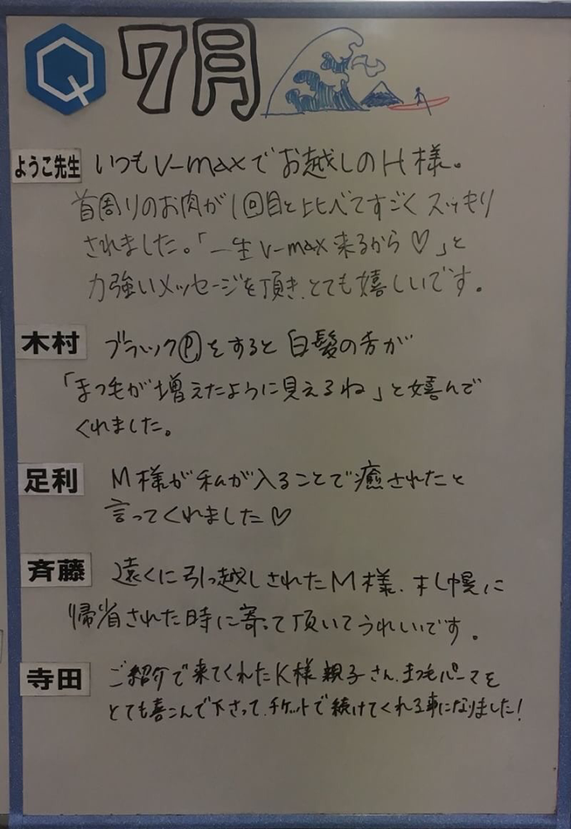 Q 7月
ようこ先生 いつもV-maxでお越しのH様。
首周りのお肉が1回目と比べてすごくスッキリ
されました。「一生V-max来るから♡」と
力強いメッセージを頂き、とても嬉しいです。
木村 ブラックⓅをすると白髪の方が
「まつ毛が増えたように見えるね」と嬉んで
くれました。
足利 M様が私が入ることで癒されたと
言ってくれました♡
斉藤 遠くに引っ越しされたM様、札幌に
帰省された時に寄って頂いてうれしいです。
寺田 ご紹介で来てくれたK様親子さん、まつ毛パーマを
とても喜こんで下さって、チケットで続けてくれる事になりました!